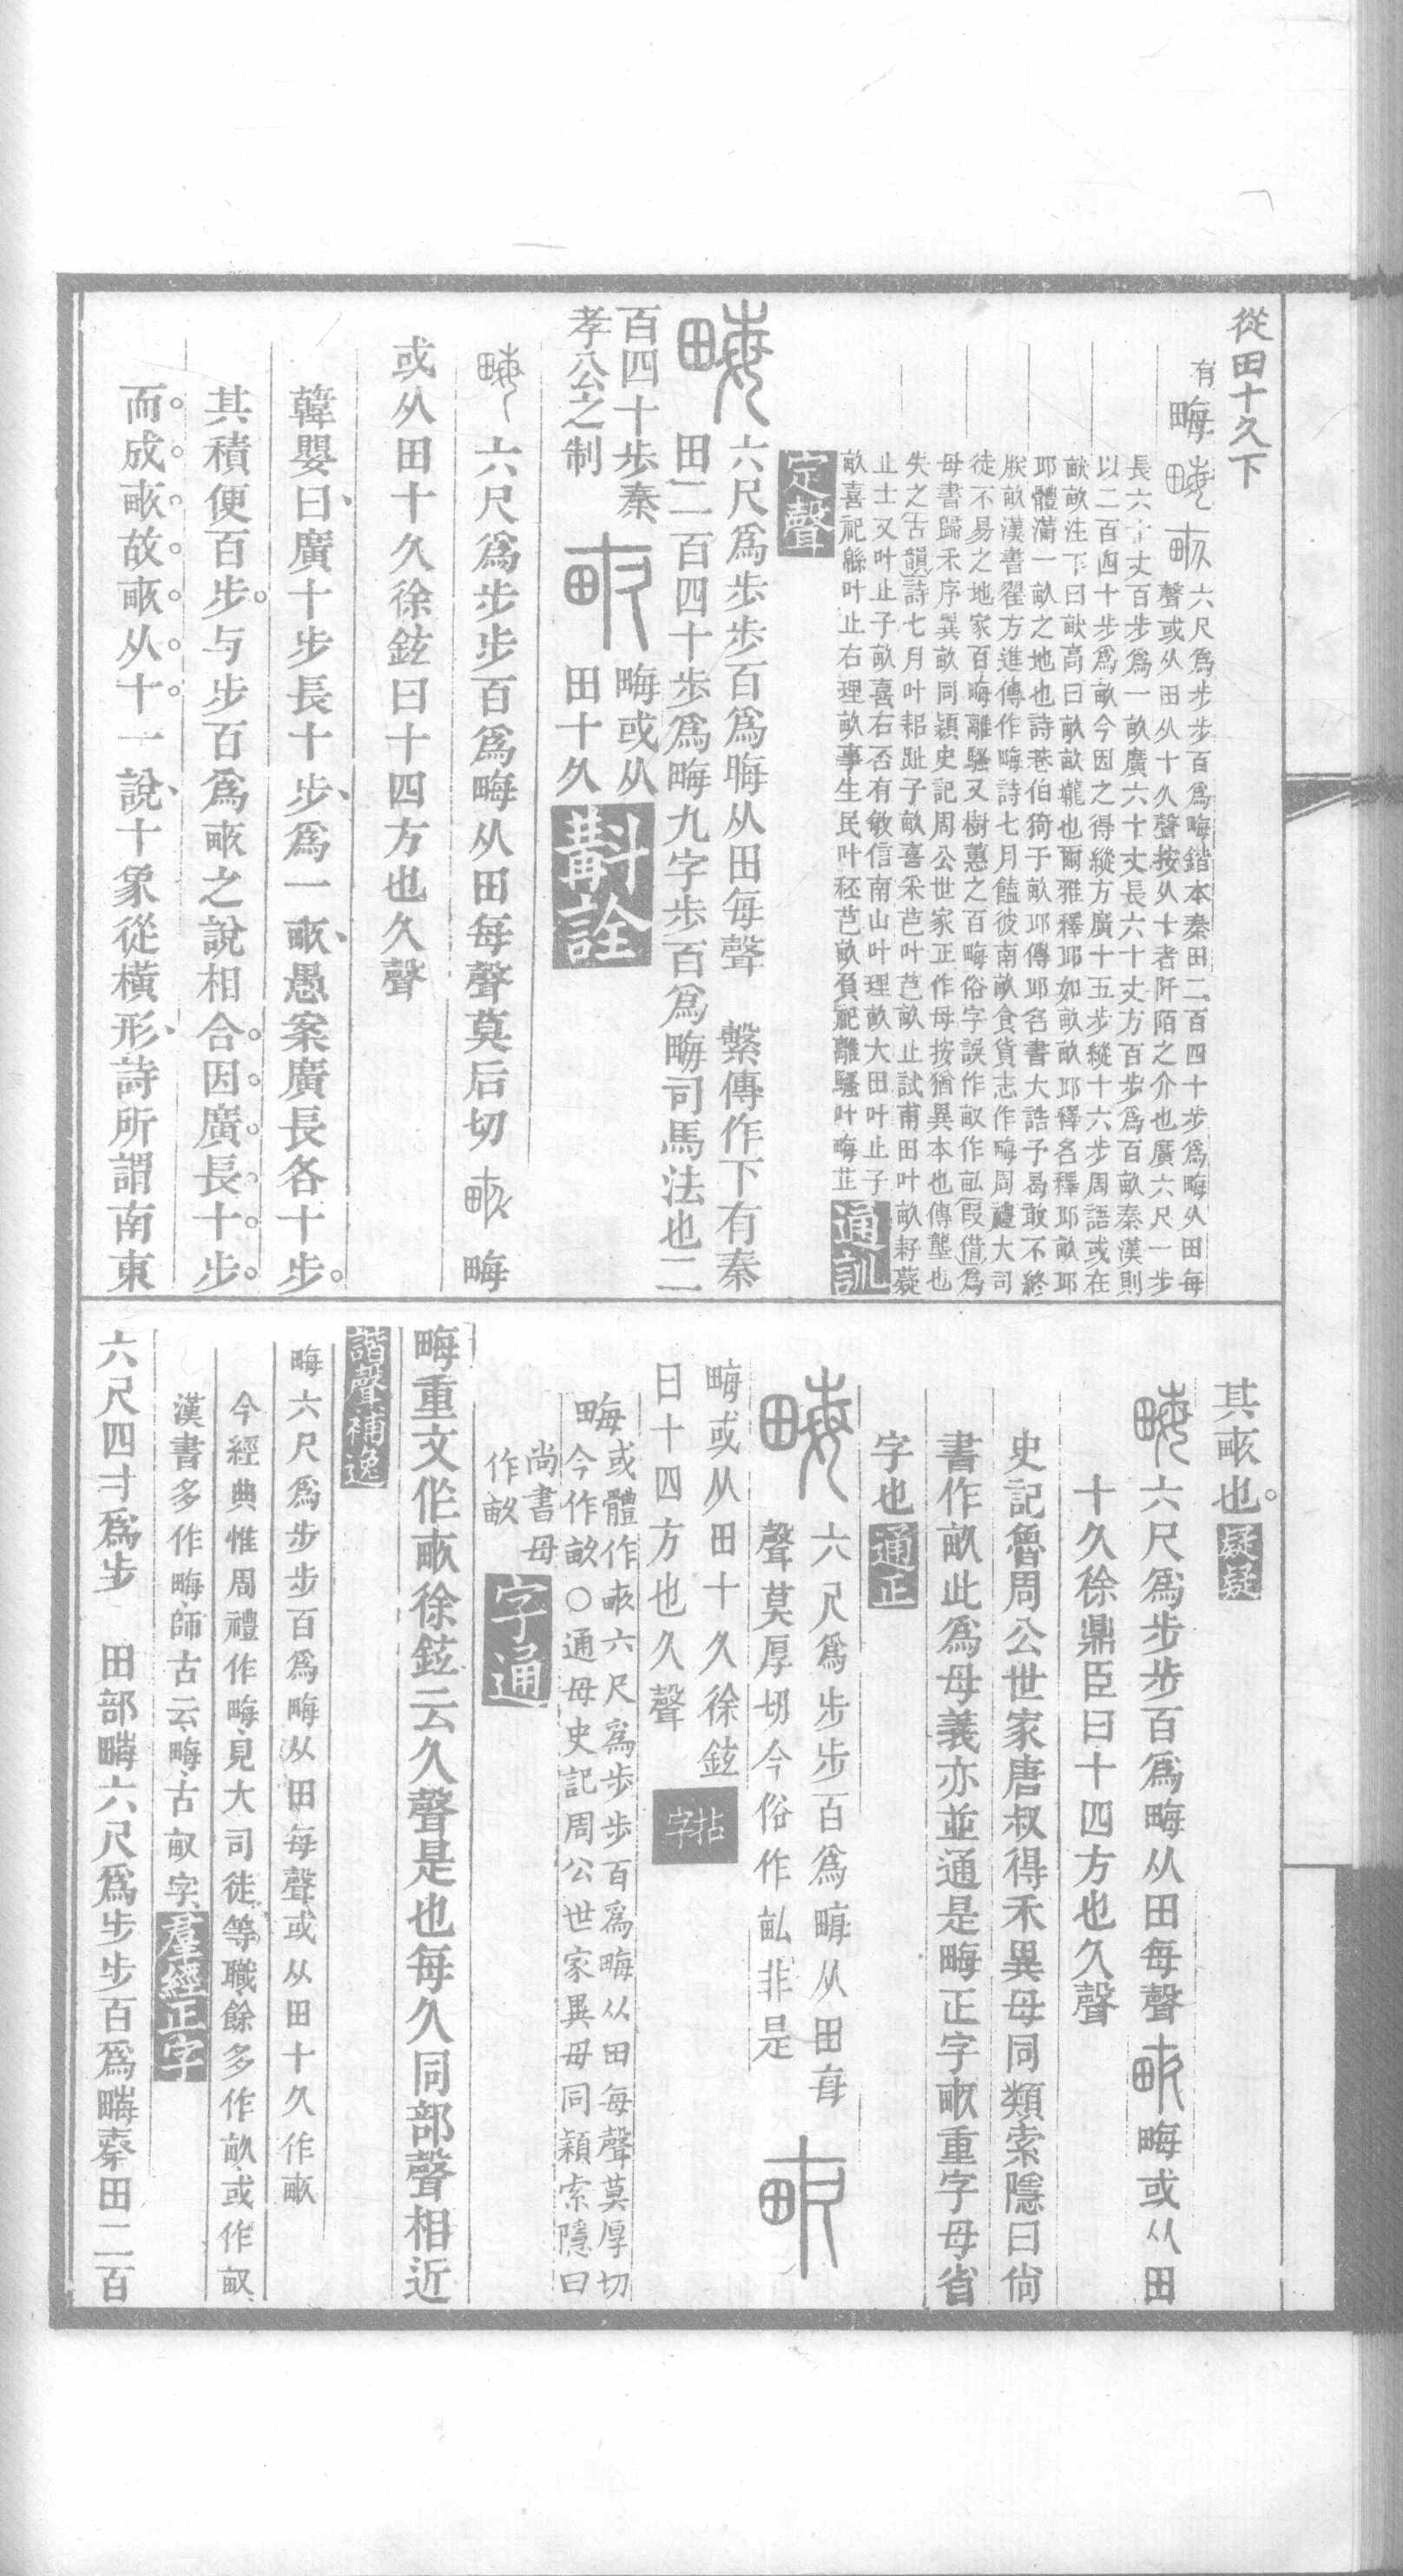 從田十久下
有畮畮畒六尺爲步步百爲畮鍇本秦田二百四十步爲畮从田每
聲或从田从十久聲按从十者阡陌之介也廣六尺一步
長六十丈百步爲一畝廣六十丈長六十丈方百步爲百畝秦漢則
以二百四十步爲畝今因之得縱方廣十五步縱十六步周語或在
畎畝注下曰畎高曰畝畝壠也爾雅釋邱如畝畝邱釋名釋邱畝邱
邱體滿一畝之地也詩巷伯猗于畝邱傳邱名書大誥予曷敢不終
朕畝漢書翟方進傳作畮詩七月饁彼南畝食貨志作畮周禮大司
徒不易之地家百畮離騷又樹蕙之百畮俗字誤作畞作畆叚借爲
母書歸禾序異畝同穎史記周公世家正作母按猶異本也傳壟也
失之古韻詩七月叶耜趾子畝喜采芑叶芑畝止試甫田叶畝耔薿
止士又叶止子畝喜右否有敏信南山叶理畝大田叶止子
畝喜祀緜叶止右理畝事生民叶秠芑畝負祀離騷叶畮芷通訓
定聲
畮六尺爲步步百爲畮从田每聲 繫傳作下有秦
田二百四十步爲畮九字步百爲畮司馬法也二
百四十步秦
孝公之制
畒畮或从
田十久斠詮
畮六尺爲步步百爲畮从田每聲莫后切畒畮
或从田十久徐鉉曰十四方也久聲
韓嬰曰廣十步長十步爲一畒愚案廣長各十步。
其積便百步。与步百爲畒之說相合。因廣長十步。
而成畒。故畒从十一說十象從橫形詩所謂南東
其畒也。疑疑
畮六尺爲步步百爲畮从田每聲畒畮或从田
十久徐鼎臣曰十四方也久聲
史記魯周公世家唐叔得禾異母同類索隱曰尚
書作畝此爲母義亦並通是畮正字畒重字母省
字也通正
畮六尺爲步步百爲畮从田每
聲莫厚切今俗作畆非是畒
畮或从田十久徐鉉
曰十四方也久聲拈字
畮或體作畒六尺爲步步百爲畮从田每聲莫厚切
今作畝○通母史記周公世家異母同穎索隱曰
尚書母
作畝字通
畮重文作畒徐鉉云久聲是也每久同部聲相近
諧聲補逸
畮六尺爲步步百爲畮从田每聲或从田十久作畒
今經典惟周禮作畮見大司徒等職餘多作畝或作畞
漢書多作畮師古云畮古畞字羣經正字
六尺四寸爲步 田部畮六尺爲步步百爲畮秦田二百